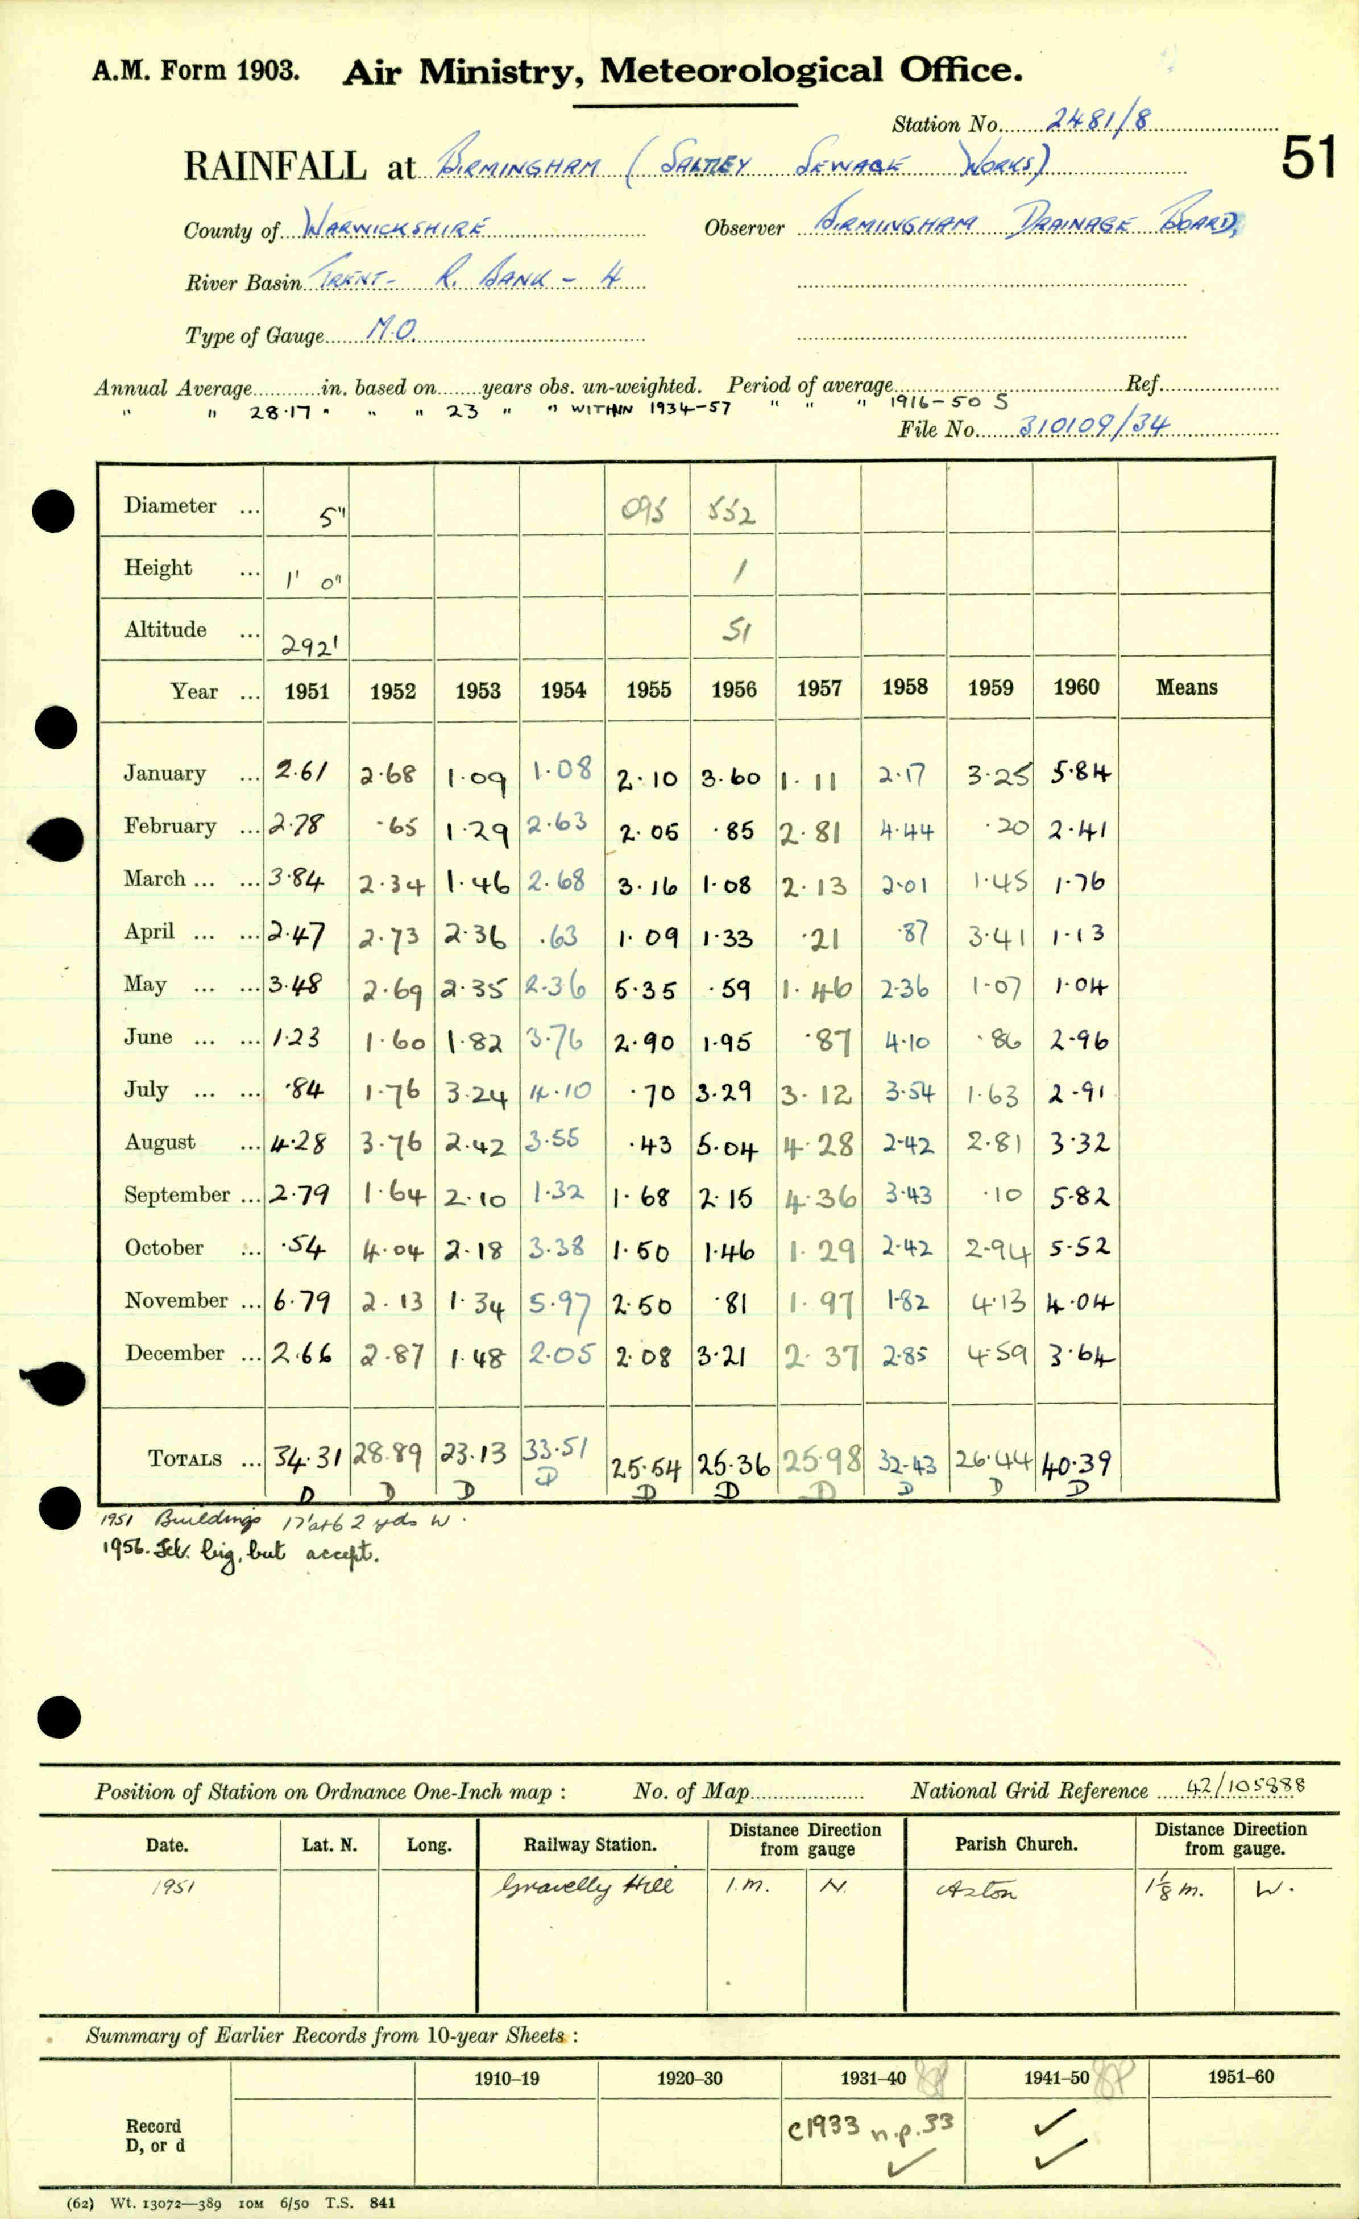 A.M. Form 1903. Air Ministry, Meteorological Office.
Station No. 2481/8
RAINFALL at BIRMINGHAM (SALTLEY SEWAGE WORKS) 51
County of WARWICKSHIRE Observer BIRMINGHAM DRAINAGE BOARD,
River Basin TRENT - R. BANK - 4
Type of Gauge M.O.
Annual Average in. based on years obs. un-weighted. Period of average Ref.
" " 28.17 " " " 23 " " WITHIN 1934-57 " " " 1916-50 S
File No. 310109/34
Diameter ... 5" 095 552
Height ... 1' 0" 1
Altitude ... 292' 51
Year ... 1951 1952 1953 1954 1955 1956 1957 1958 1959 1960 Means
January ... 2.61 2.68 1.09 1.08 2.10 3.60 1.11 2.17 3.25 5.84
February ... 2.78 .65 1.29 2.63 2.05 .85 2.81 4.44 .20 2.41
March ... ... 3.84 2.34 1.46 2.68 3.16 1.08 2.13 2.01 1.45 1.76
April ... ... 2.47 2.73 2.36 .63 1.09 1.33 .21 .87 3.41 1.13
May ... ... 3.48 2.69 2.35 2.36 5.35 .59 1.46 2.36 1.07 1.04
June ... ... 1.23 1.60 1.82 3.76 2.90 1.95 .87 4.10 .86 2.96
July ... ... .84 1.76 3.24 4.10 .70 3.29 3.12 3.54 1.63 2.91
August ... 4.28 3.76 2.42 3.55 .43 5.04 4.28 2.42 2.81 3.32
September ... 2.79 1.64 2.10 1.32 1.68 2.15 4.36 3.43 .10 5.82
October ... .54 4.04 2.18 3.38 1.50 1.46 1.29 2.42 2.94 5.52
November ... 6.79 2.13 1.34 5.97 2.50 .81 1.97 1.82 4.13 4.04
December ... 2.66 2.87 1.48 2.05 2.08 3.21 2.37 2.85 4.59 3.64
TOTALS ... 34.31 28.89 23.13 33.51 25.54 25.36 25.98 32.43 26.44 40.39
D D D D D D D D D D
1951 Buildings 17' at 62 yds W.
1956. Feb. big, but accept.
Position of Station on Ordnance One-Inch map : No. of Map National Grid Reference 42/105888
Date. Lat. N. Long. Railway Station. Distance Direction from gauge Parish Church. Distance Direction from gauge.
1951 Gravelly Hill 1 m. N. Aston 1 1/8 m. W.
Summary of Earlier Records from 10-year Sheets :
1910–19 1920–30 1931–40 1941–50 1951–60
Record D, or d c1933 n.p. 33 ✓ ✓ ✓
(62) Wt. 13072—389 10M 6/50 T.S. 841